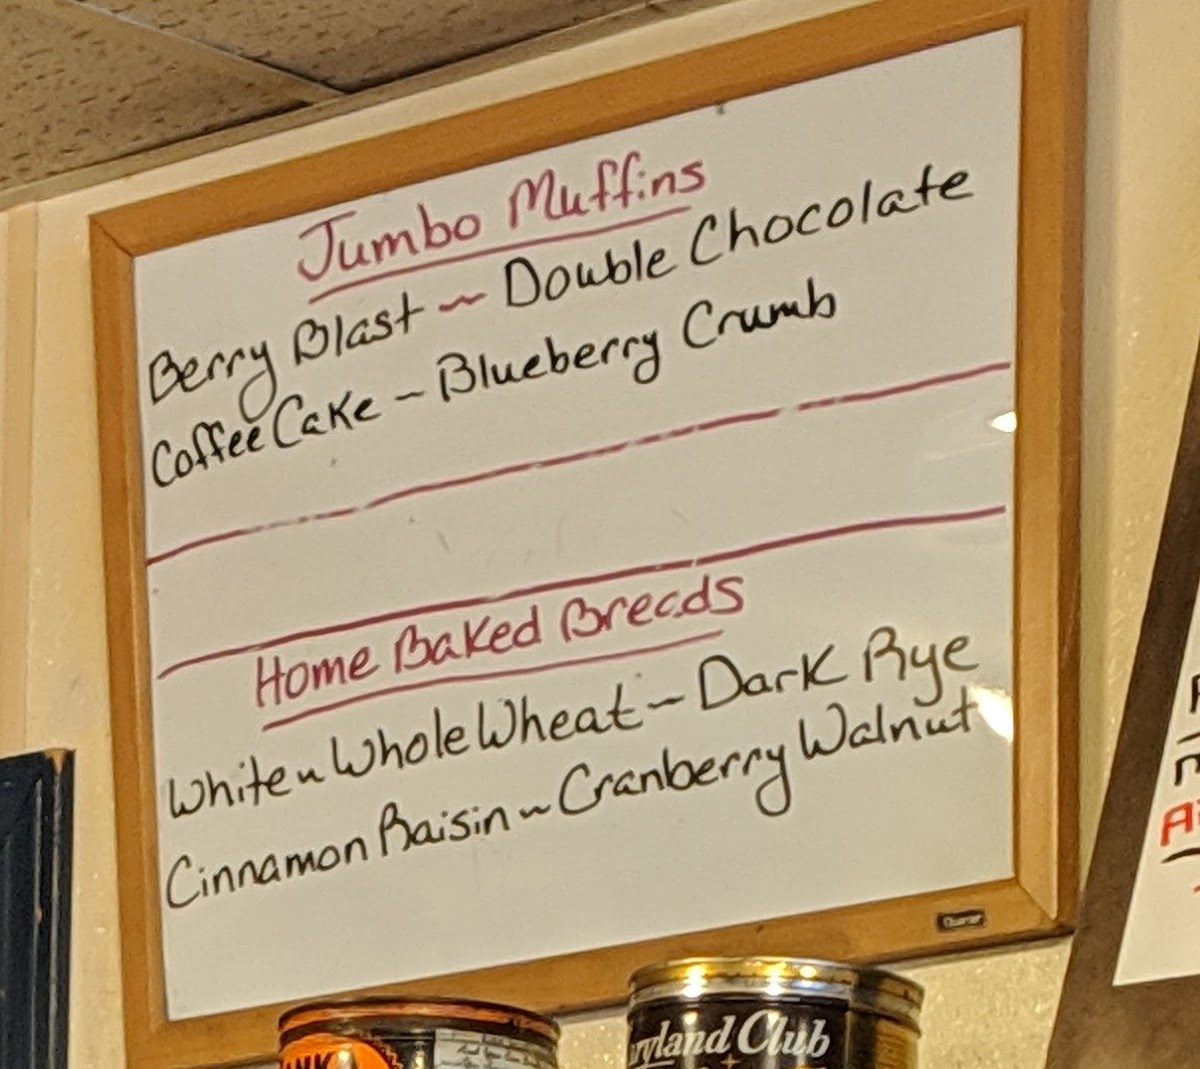 Jumbo Muffins
Berry Blast ~ Double Chocolate
Coffee Cake ~ Blueberry Crumb
Home Baked Breads
White ~ Whole Wheat ~ Dark Rye
Cinnamon Raisin ~ Cranberry Walnut
Quartet
Club